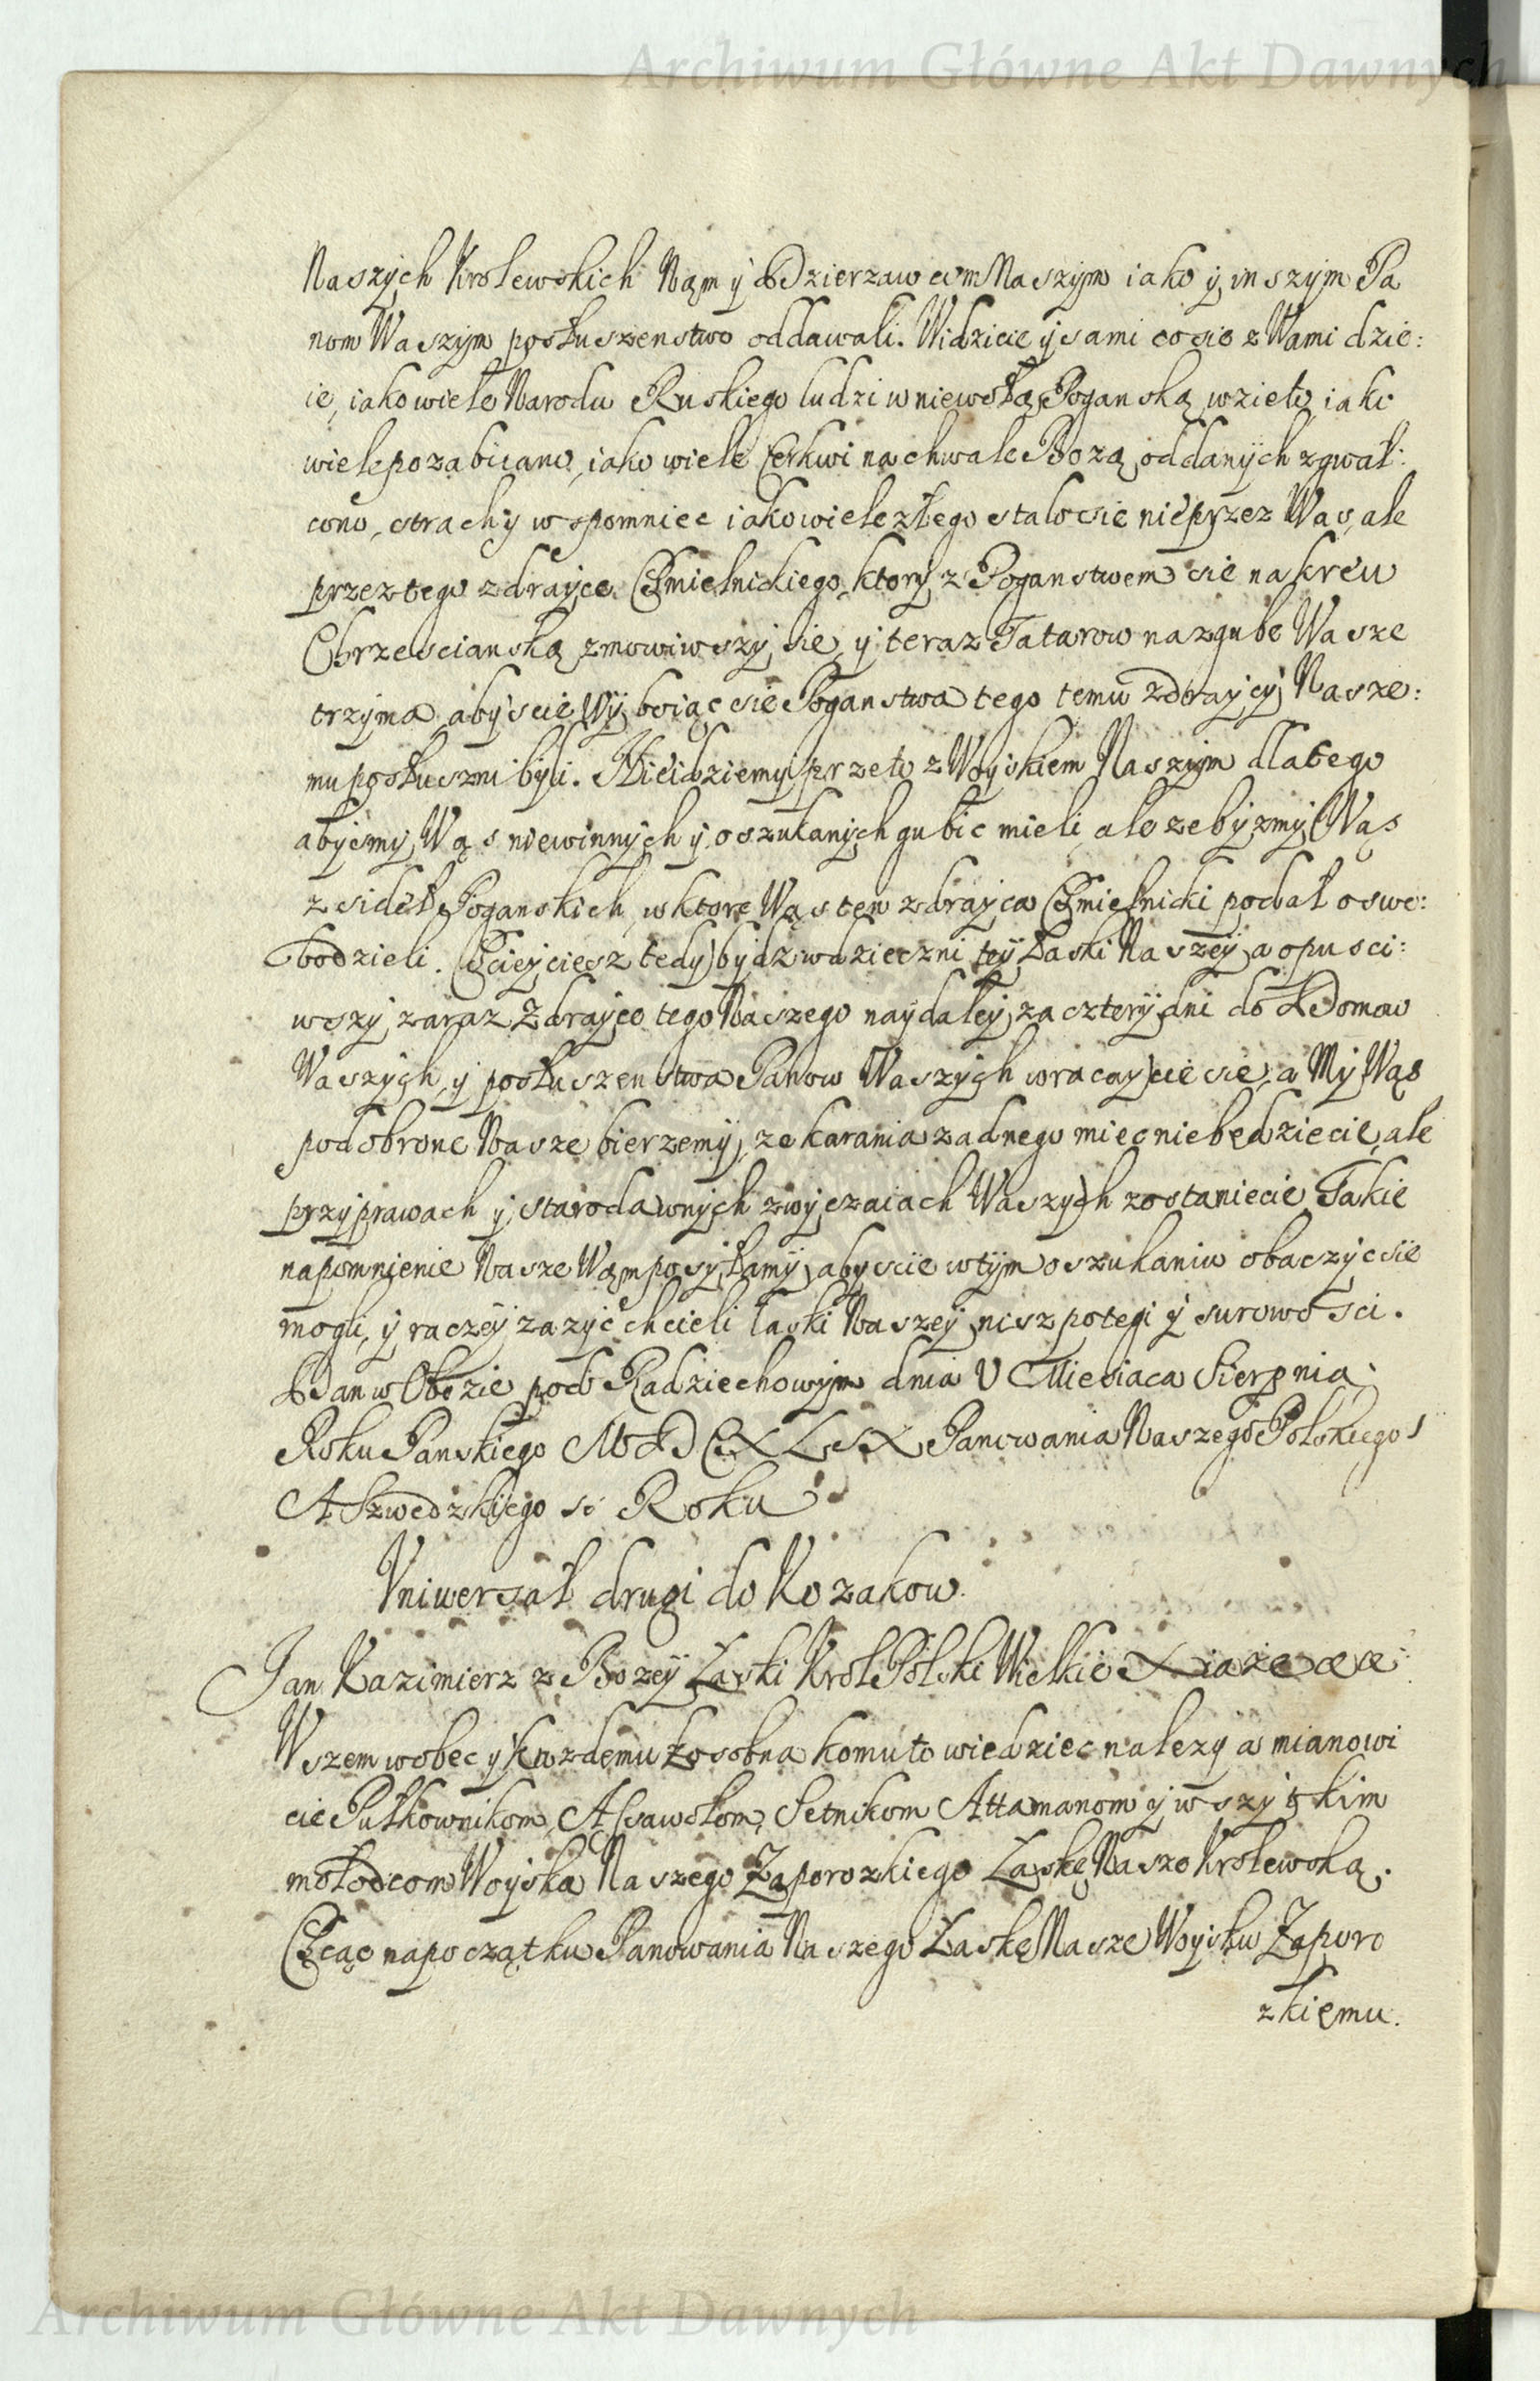 Archiwum Główne Akt Dawnych
Naszych Krolewskich Nąm y Dzierzawcom Naszym iako y inszym Pa
nom Waszym posłuszenstwo oddawali. Widzicie y sami co sie z Wami dzie:
ie, iako wiele Narodu Ruskiego ludzi w niewolą Poganską wzieto, iako
wiele pozabiiano, iako wiele Cerkwi na chwale Bozą oddanych zgwał:
cono, strach y wspomniec iako wiele złego stalo sie nie przez Was, ale
przez tego zdrayce Chmielnickiego, ktory z Poganstwem sie na krew
Chrzescianską zmowiwszy sie, y teraz Tatarow na zgube Wasze
trzyma, abyscie Wy boiąc sie Poganstwa tego temu zdraycy Nasze:
mu posłuszni byli. Nie idziemy przeto z Woyskiem Naszym dlatego
abysmy Wąs niewinnych y oszukanych gubic mieli, ale zebyzmy Wąs
z sideł Poganskich, w ktore Wąs ten zdrayca Chmielnicki podał oswo:
bodzieli. Chcieyciesz tedy bydz wdzieczni tey Łaski Naszey, a opusci:
wszy zaraz Zdrayce tego Naszego naydaley za cztery dni do Domow
Waszych, y posłuszenstwa Panow Waszych wracaycie sie, a My Wąs
pod obrone Nasze bierzemy, ze karania zadnego miec nie będziecie, ale
przy prawach y starodawnych zwyczaiach Waszych zostaniecie. Takie
napomnienie Nasze Wąm posyłamy, abyscie w tym oszukaniu obaczyc sie
mogli, y raczey zazyc chcieli łaski Naszey, nisz potegi y surowosci.
Dan w Obozie pod Radziechowym dnia V Miesiaca Sierpnia
Roku Panskiego MDCXLIX Panowania Naszego Polskiego I
A Szwedzkiego II Roku
Vniwersał drugi do Kozakow.
Jan Kazimierz z Bozey Łaski Krol Polski Wielkie Xiąże &c &c:
Wszem wobec y kazdemu zosobna komu to wiedziec nalezy a mianowi
cie Pułkownikom, Assawołom, Setnikom Attamanom y wszytkim
mołodcom Woyska Naszego Zaporozkiego Łaskę Nasze Krolewską.
Chcąc na początku Panowania Naszego Łaskę Nasze Woysku Zaporo
zkiemu.
Archiwum Główne Akt Dawnych